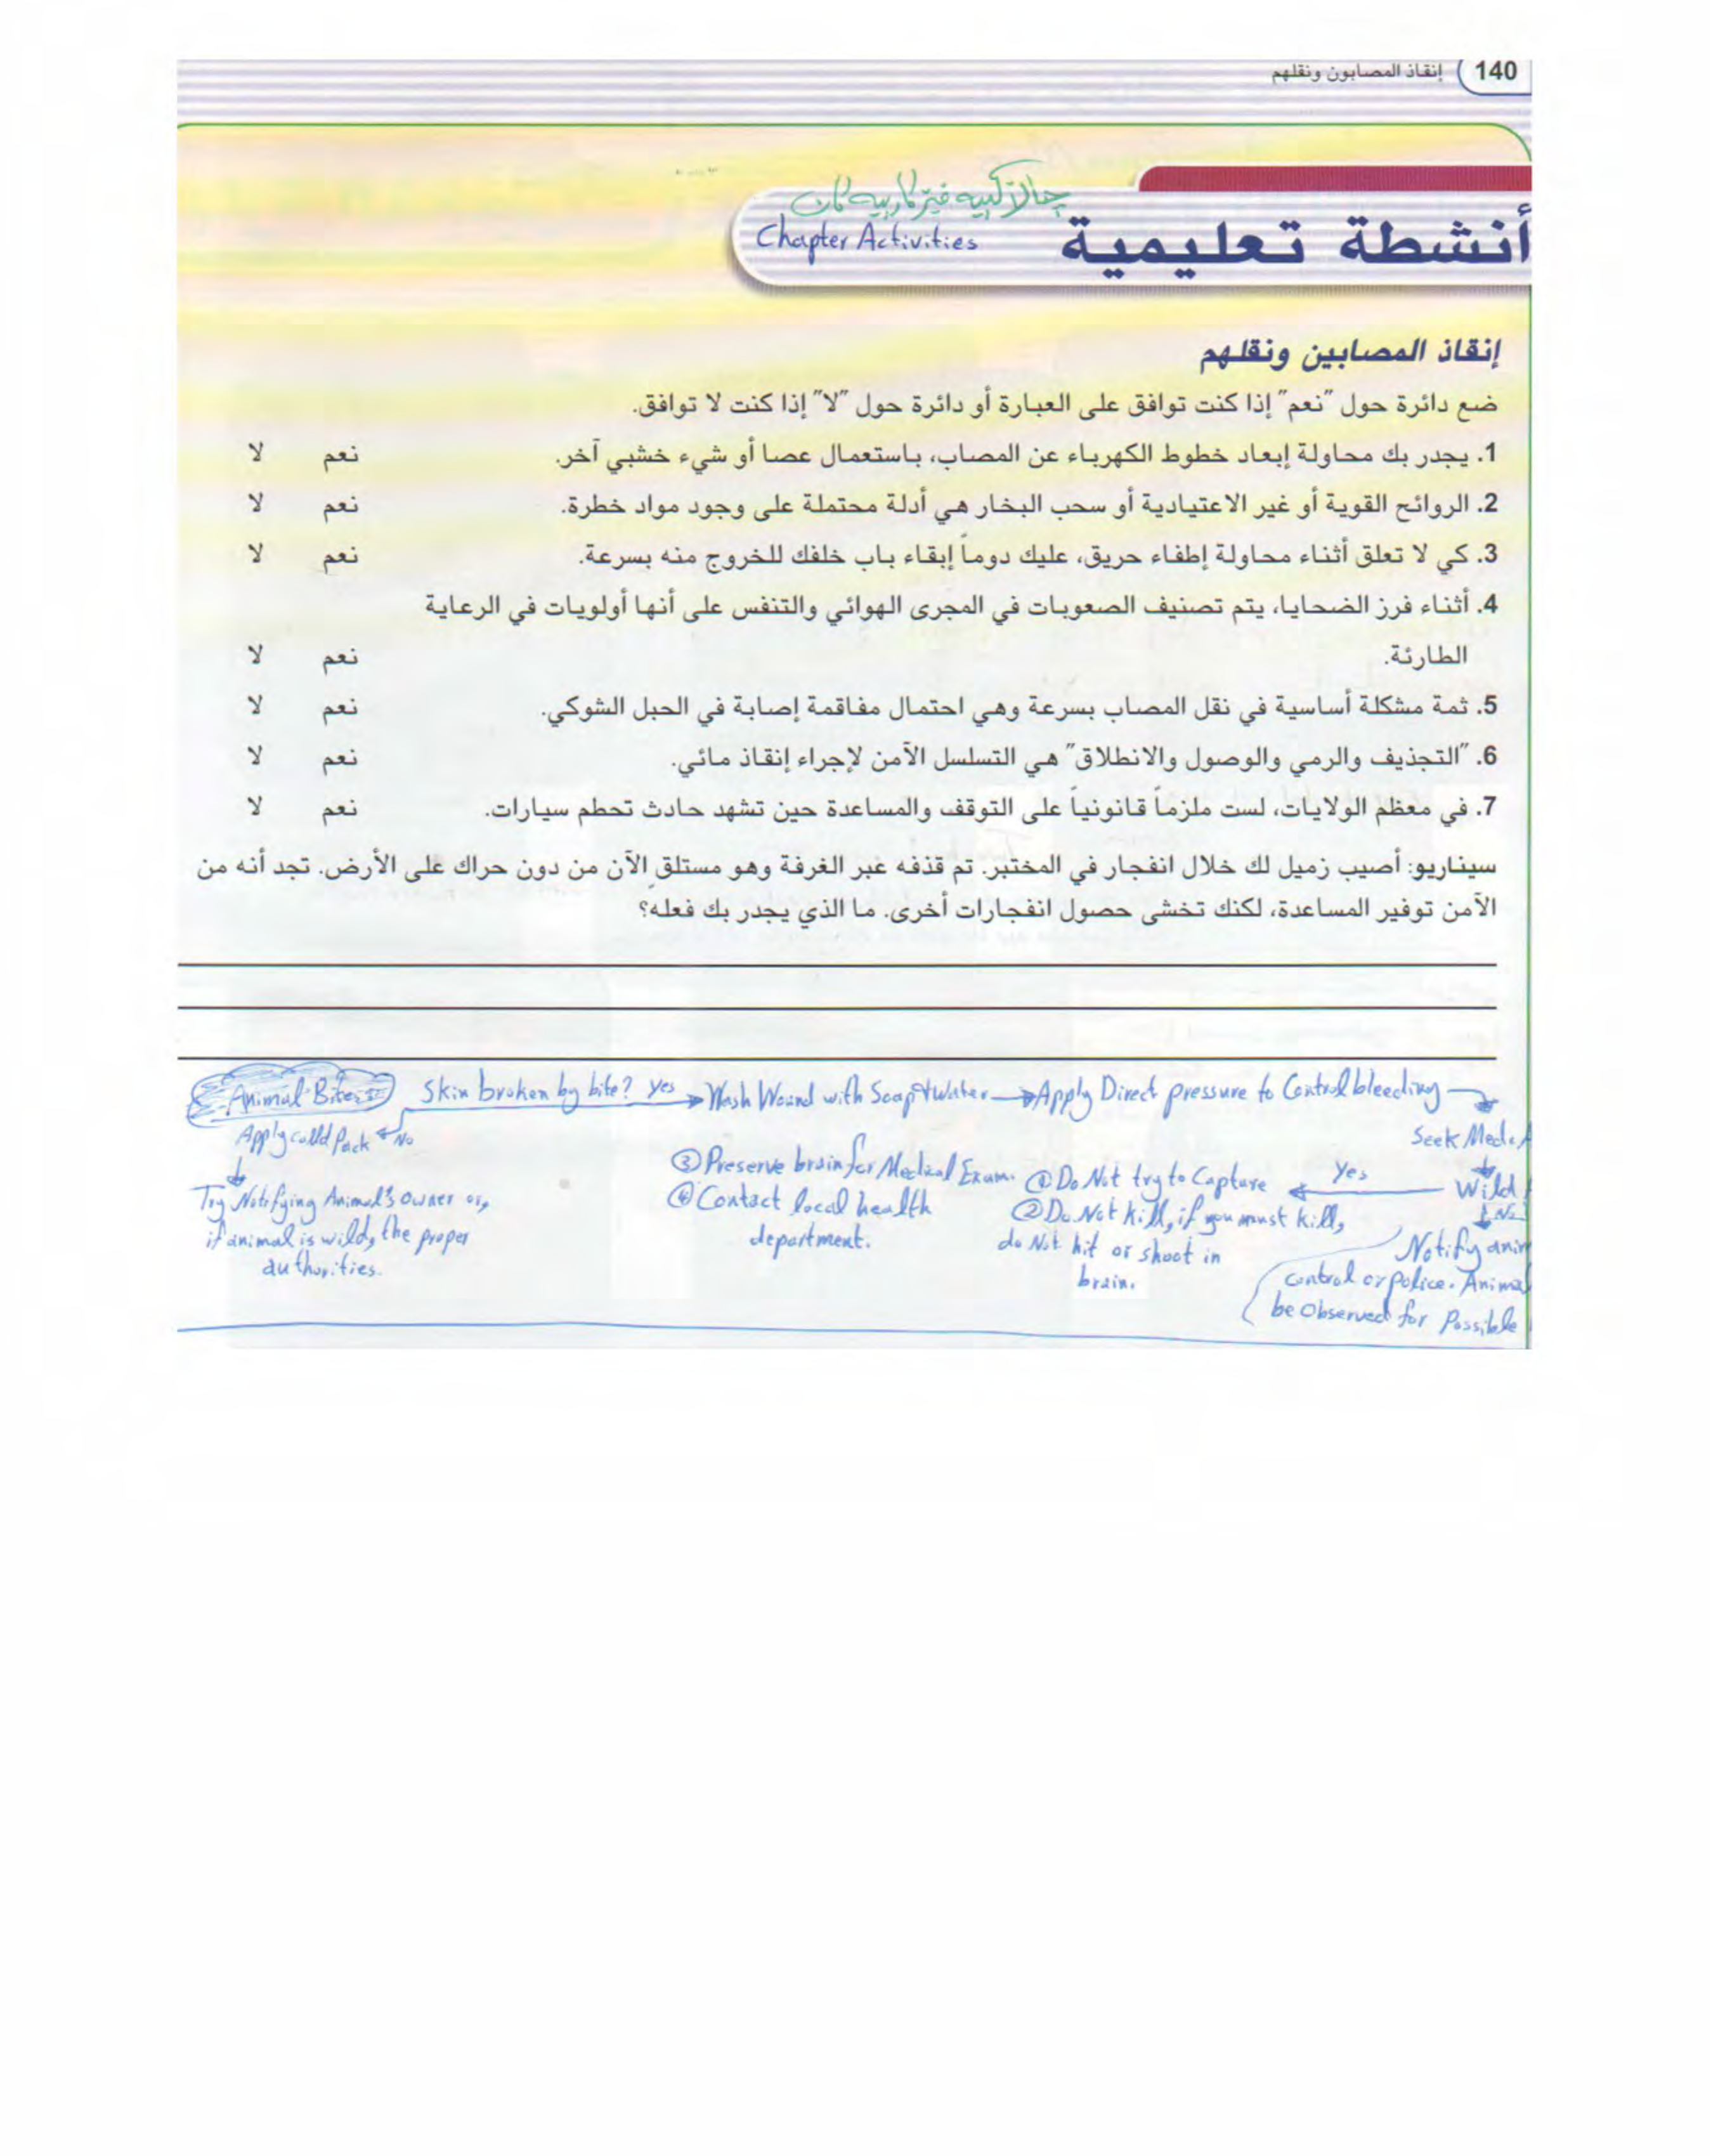 140 إنقاذ المصابون ونقلهم
چالاکییه فێرکارییه کان
أنشطة تعليمية
Chapter Activities
إنقاذ المصابين ونقلهم
ضع دائرة حول "نعم" إذا كنت توافق على العبارة أو دائرة حول "لا" إذا كنت لا توافق.
1. يجدر بك محاولة إبعاد خطوط الكهرباء عن المصاب، باستعمال عصا أو شيء خشبي آخر. نعم لا
2. الروائح القوية أو غير الاعتيادية أو سحب البخار هي أدلة محتملة على وجود مواد خطرة. نعم لا
3. كي لا تعلق أثناء محاولة إطفاء حريق، عليك دوماً إبقاء باب خلفك للخروج منه بسرعة. نعم لا
4. أثناء فرز الضحايا، يتم تصنيف الصعوبات في المجرى الهوائي والتنفس على أنها أولويات في الرعاية
الطارئة. نعم لا
5. ثمة مشكلة أساسية في نقل المصاب بسرعة وهي احتمال مفاقمة إصابة في الحبل الشوكي. نعم لا
6. "التجذيف والرمي والوصول والانطلاق" هي التسلسل الآمن لإجراء إنقاذ مائي. نعم لا
7. في معظم الولايات، لست ملزماً قانونياً على التوقف والمساعدة حين تشهد حادث تحطم سيارات. نعم لا
سيناريو: أصيب زميل لك خلال انفجار في المختبر. تم قذفه عبر الغرفة وهو مستلق الآن من دون حراك على الأرض. تجد أنه من
الآمن توفير المساعدة، لكنك تخشى حصول انفجارات أخرى. ما الذي يجدر بك فعله؟
Animal Bites Skin broken by bite? yes Wash Wound with Soap & Water Apply Direct pressure to Control bleeding
Seek Medi
Apply colld Pack No
Try Notifying Animal's owner or,
if animal is wild, the proper
authorities.
③ Preserve brain for Medical Exam.
④ Contact local health
department.
① Do Not try to Capture
② Do Not kill, if you must kill,
do Not hit or shoot in
brain.
Yes Wild
No
Notify anim
control or police. Animal
be Observed for Possible